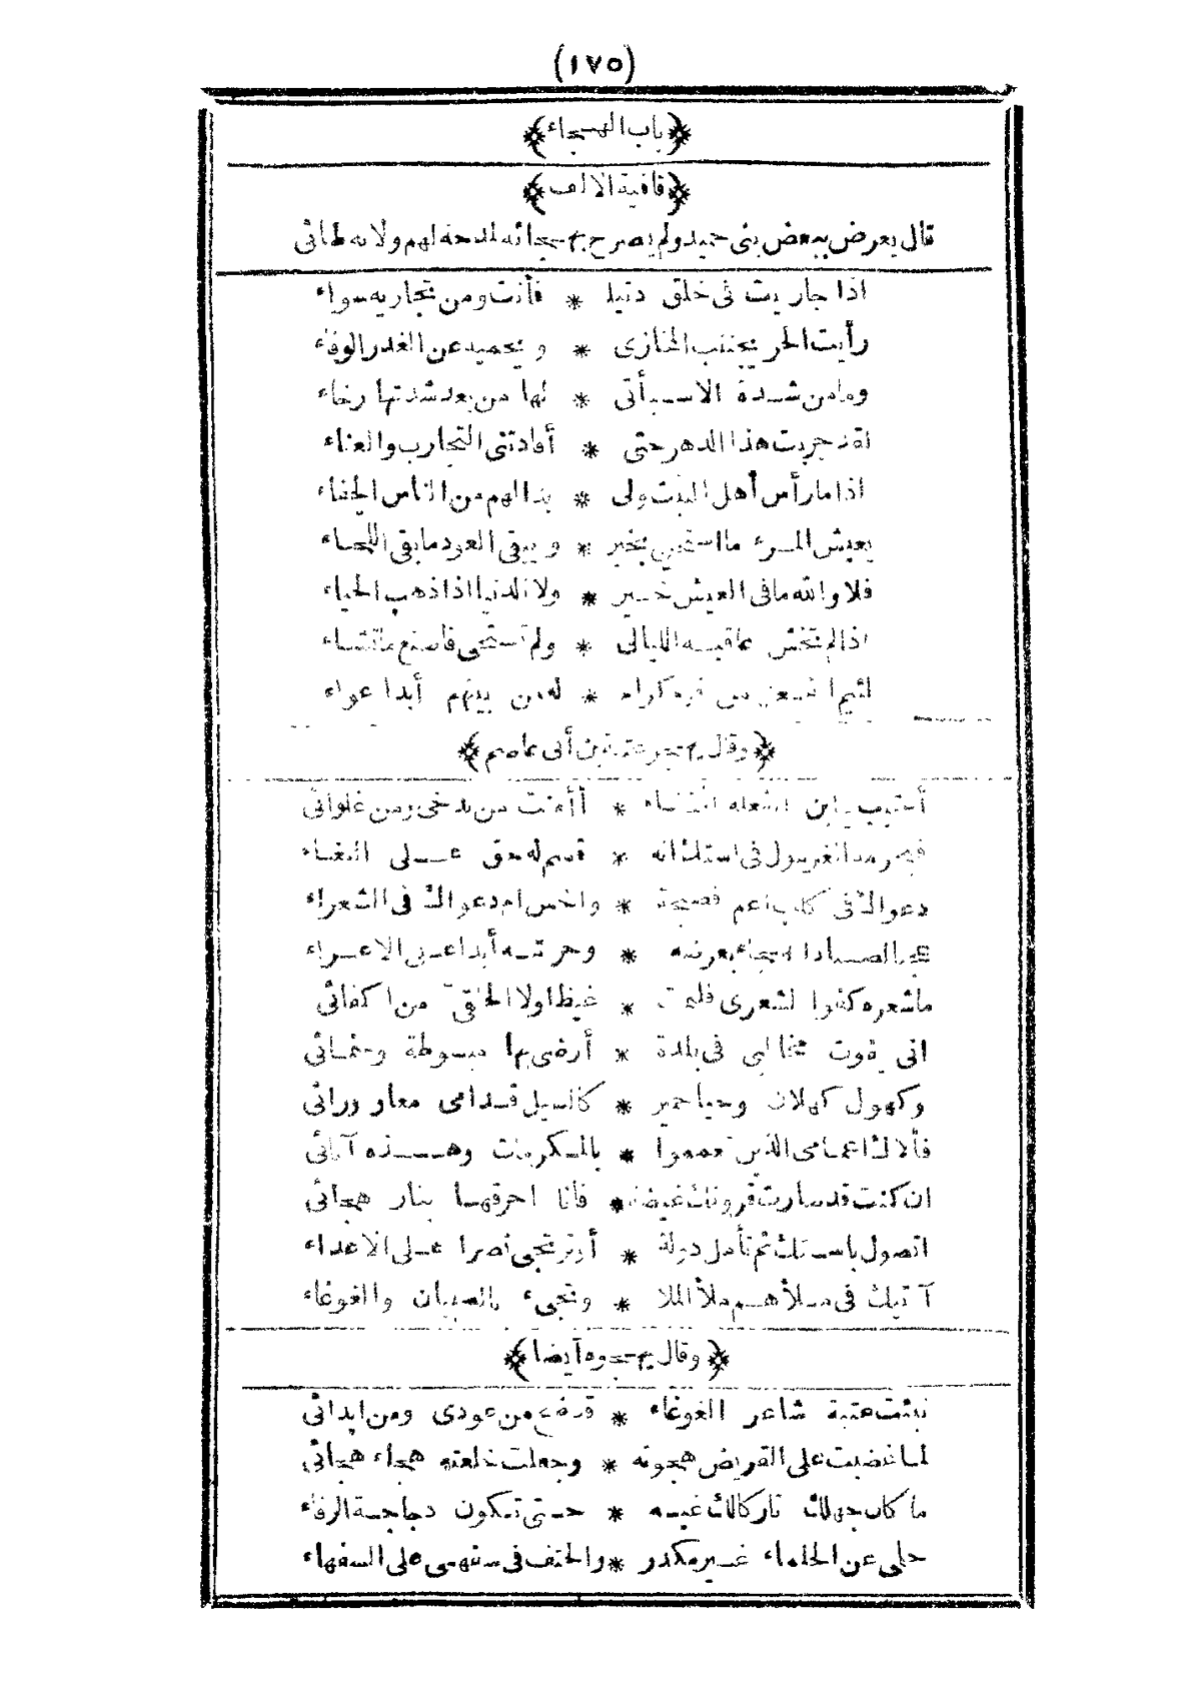 (١٧٥)
﴿باب الهجاء﴾
﴿قافية الالف﴾
قال يعرض ببعض بنى حميد ولم يصرح بهجائه لمدحه لهم ولانه طائى
اذا جاريت فى خلق دنيا * فأنت ومن تجاريه سواء
رأيت الحر يجتنب المخازى * ويحميه عن الغدر الوفاء
وما من شدة الا سيأتى * لها من بعد شدتها رخاء
لقد جربت هذا الدهر حتى * أفادتنى التجارب والعناء
اذا ما رأس أهل البيت ولى * بدا لهم من الناس الجفاء
يعيش المرء ما استحيى بخير * ويبقى العود ما بقى اللحاء
فلا والله ما فى العيش خير * ولا الدنيا اذا ذهب الحياء
اذا لم تخش عاقبة الليالى * ولم تستحى فاصنع ما تشاء
لئيم الفعل من قوم كرام * له من بينهم أبدا عواء
﴿وقال يهجو عتبة بن أبى عاصم﴾
أعتيب يا ابن الفعلة * أأمنت من بذخى ومن غلوائى
فى استلذاذه * قسم له حق على البغاء
دعواك فى كلب أعم فضيحة * واخس ام دعواك فى الشعراء
بعرضه * أبدا على الاعراء
ما شعره كفوا لشعرى فليمت * غيظا ولا الحلقى من اكفائى
انى يفوت مخالبى فى بلدة * أرضى بها مبسوطة وسمائى
وكهول كهلان وحيا حمير * كالسيل قدامى معا ورائى
فألاك اعمامى الذين تعمموا * بالمكرمات وهذه آبائى
ان كنت قد سارت * فانا احرقها بنار هجائى
اتصول باستك ثم تأمل دولة * أو ترتجى نصرا على الاعداء
آتيك فى ملأهم ملأ الملا * وتجىء بالصبيان والغوغاء
﴿وقال يهجوه أيضا﴾
نبئت عتبة شاعر الغوغاء * قد ضج من عودى ومن ابدائى
لما غضبت على القريض هجوته * وجعلت خلعته هجاء هجائى
ما كان جهلك تاركا لك غيه * حتى تكون دجاجة الرقاء
حلمى عن الحلماء غير مكدر * والحتف فى سفهى على السفهاء